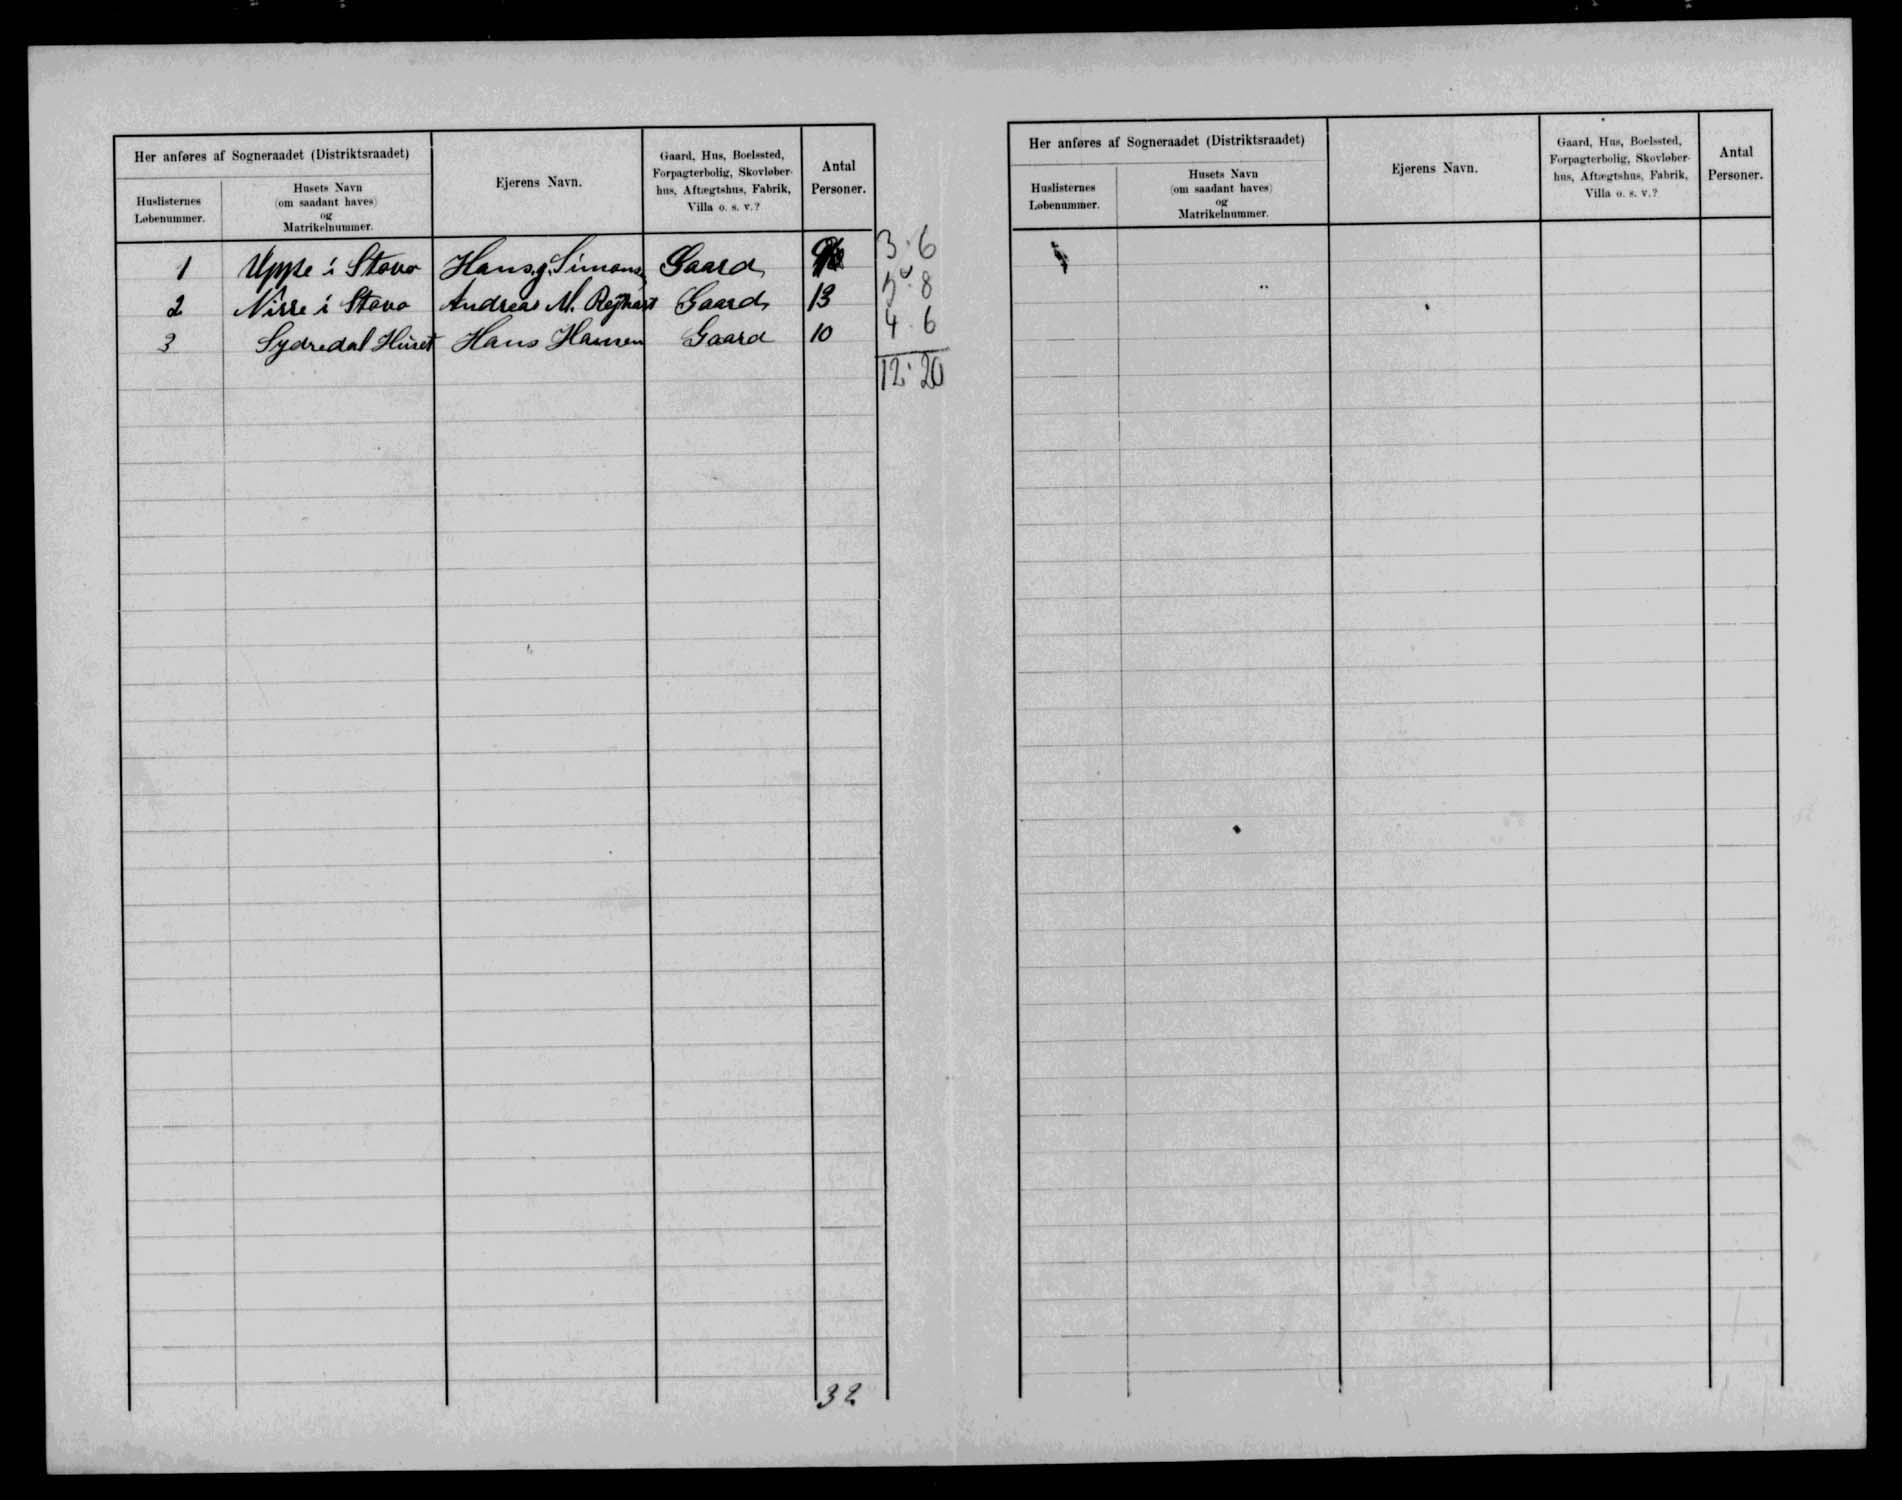 Her anføres af Sogneraadet (Distriktsraadet)
Huslisternes Løbenummer.
Husets Navn
(om saadant haves)
og
Matrikelnummer.
Ejerens Navn.
Gaard, Hus, Boelssted,
Forpagterbolig, Skovløber-
hus, Aftægtshus, Fabrik,
Villa o. s. v.?
Antal
Personer.
1 Uppe i Stovo Hans J. Simons Gaard 9 3 · 6
2 Nirre i Stovo Andreas M. Gaard 13 5 · 8
3 Sydredal Huset Hans Hansen Gaard 10 4 · 6
12 · 20
32
Her anføres af Sogneraadet (Distriktsraadet)
Huslisternes Løbenummer.
Husets Navn
(om saadant haves)
og
Matrikelnummer.
Ejerens Navn.
Gaard, Hus, Boelssted,
Forpagterbolig, Skovløber-
hus, Aftægtshus, Fabrik,
Villa o. s. v.?
Antal
Personer.